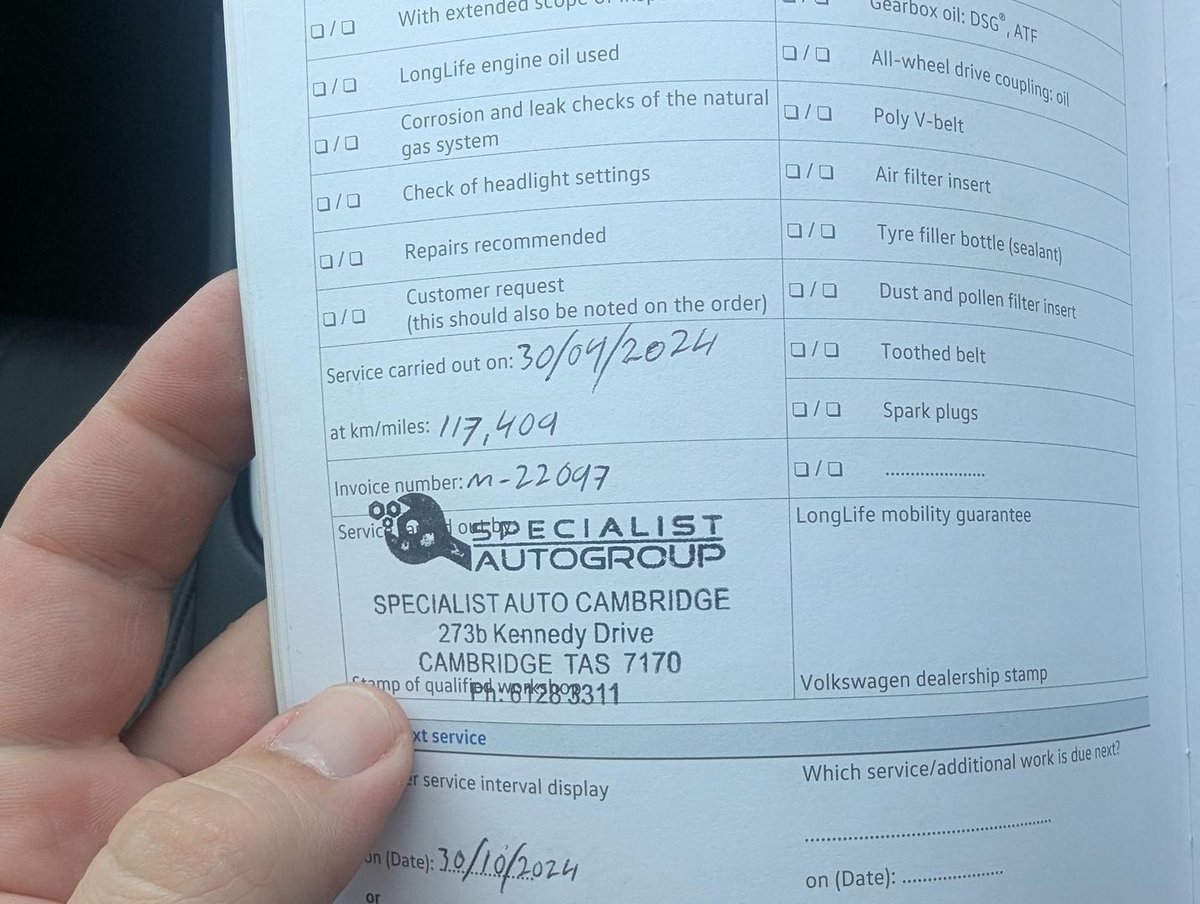 With extended scope of
LongLife engine oil used
Corrosion and leak checks of the natural
gas system
Check of headlight settings
Repairs recommended
Customer request
(this should also be noted on the order)
Service carried out on: 30/04/2024
at km/miles: 117,409
Invoice number: M-22097
Service out by
SPECIALIST
AUTOGROUP
SPECIALIST AUTO CAMBRIDGE
273b Kennedy Drive
CAMBRIDGE TAS 7170
Ph: 6128 3311
Stamp of qualified workshop
Gearbox oil: DSG®, ATF
All-wheel drive coupling: oil
Poly V-belt
Air filter insert
Tyre filler bottle (sealant)
Dust and pollen filter insert
Toothed belt
Spark plugs
LongLife mobility guarantee
Volkswagen dealership stamp
xt service
service interval display
on (Date): 30/10/2024
or
Which service/additional work is due next?
on (Date):